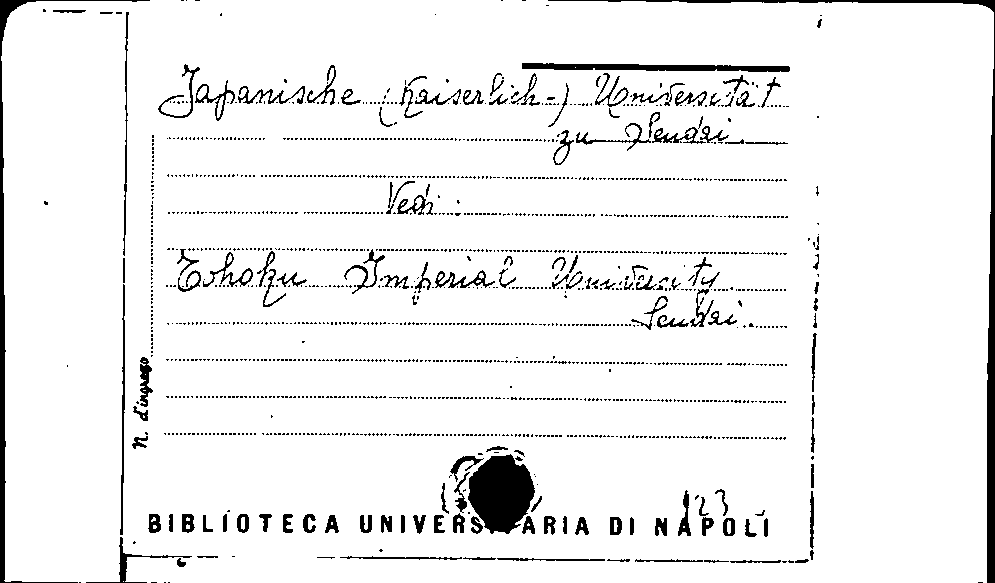 Japanische (Kaiserlich-) Universität
zu Sendai.
Vedi:
Tohoku Imperial University.
Sendai.
N. d'ingresso
123
BIBLIOTECA UNIVERSITARIA DI NAPOLI